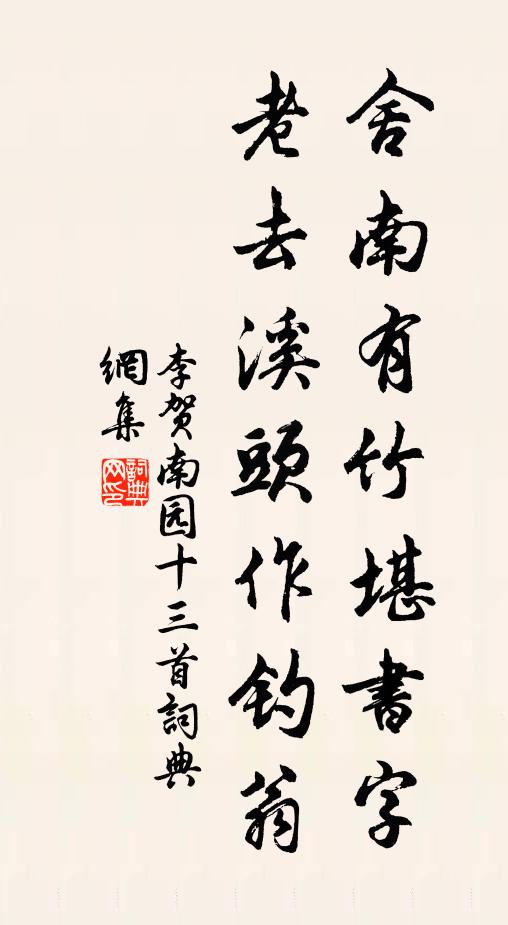 舍南有竹堪書字
老去溪頭作钓翁
李贺南园十三首詞典
網集
詞典网印